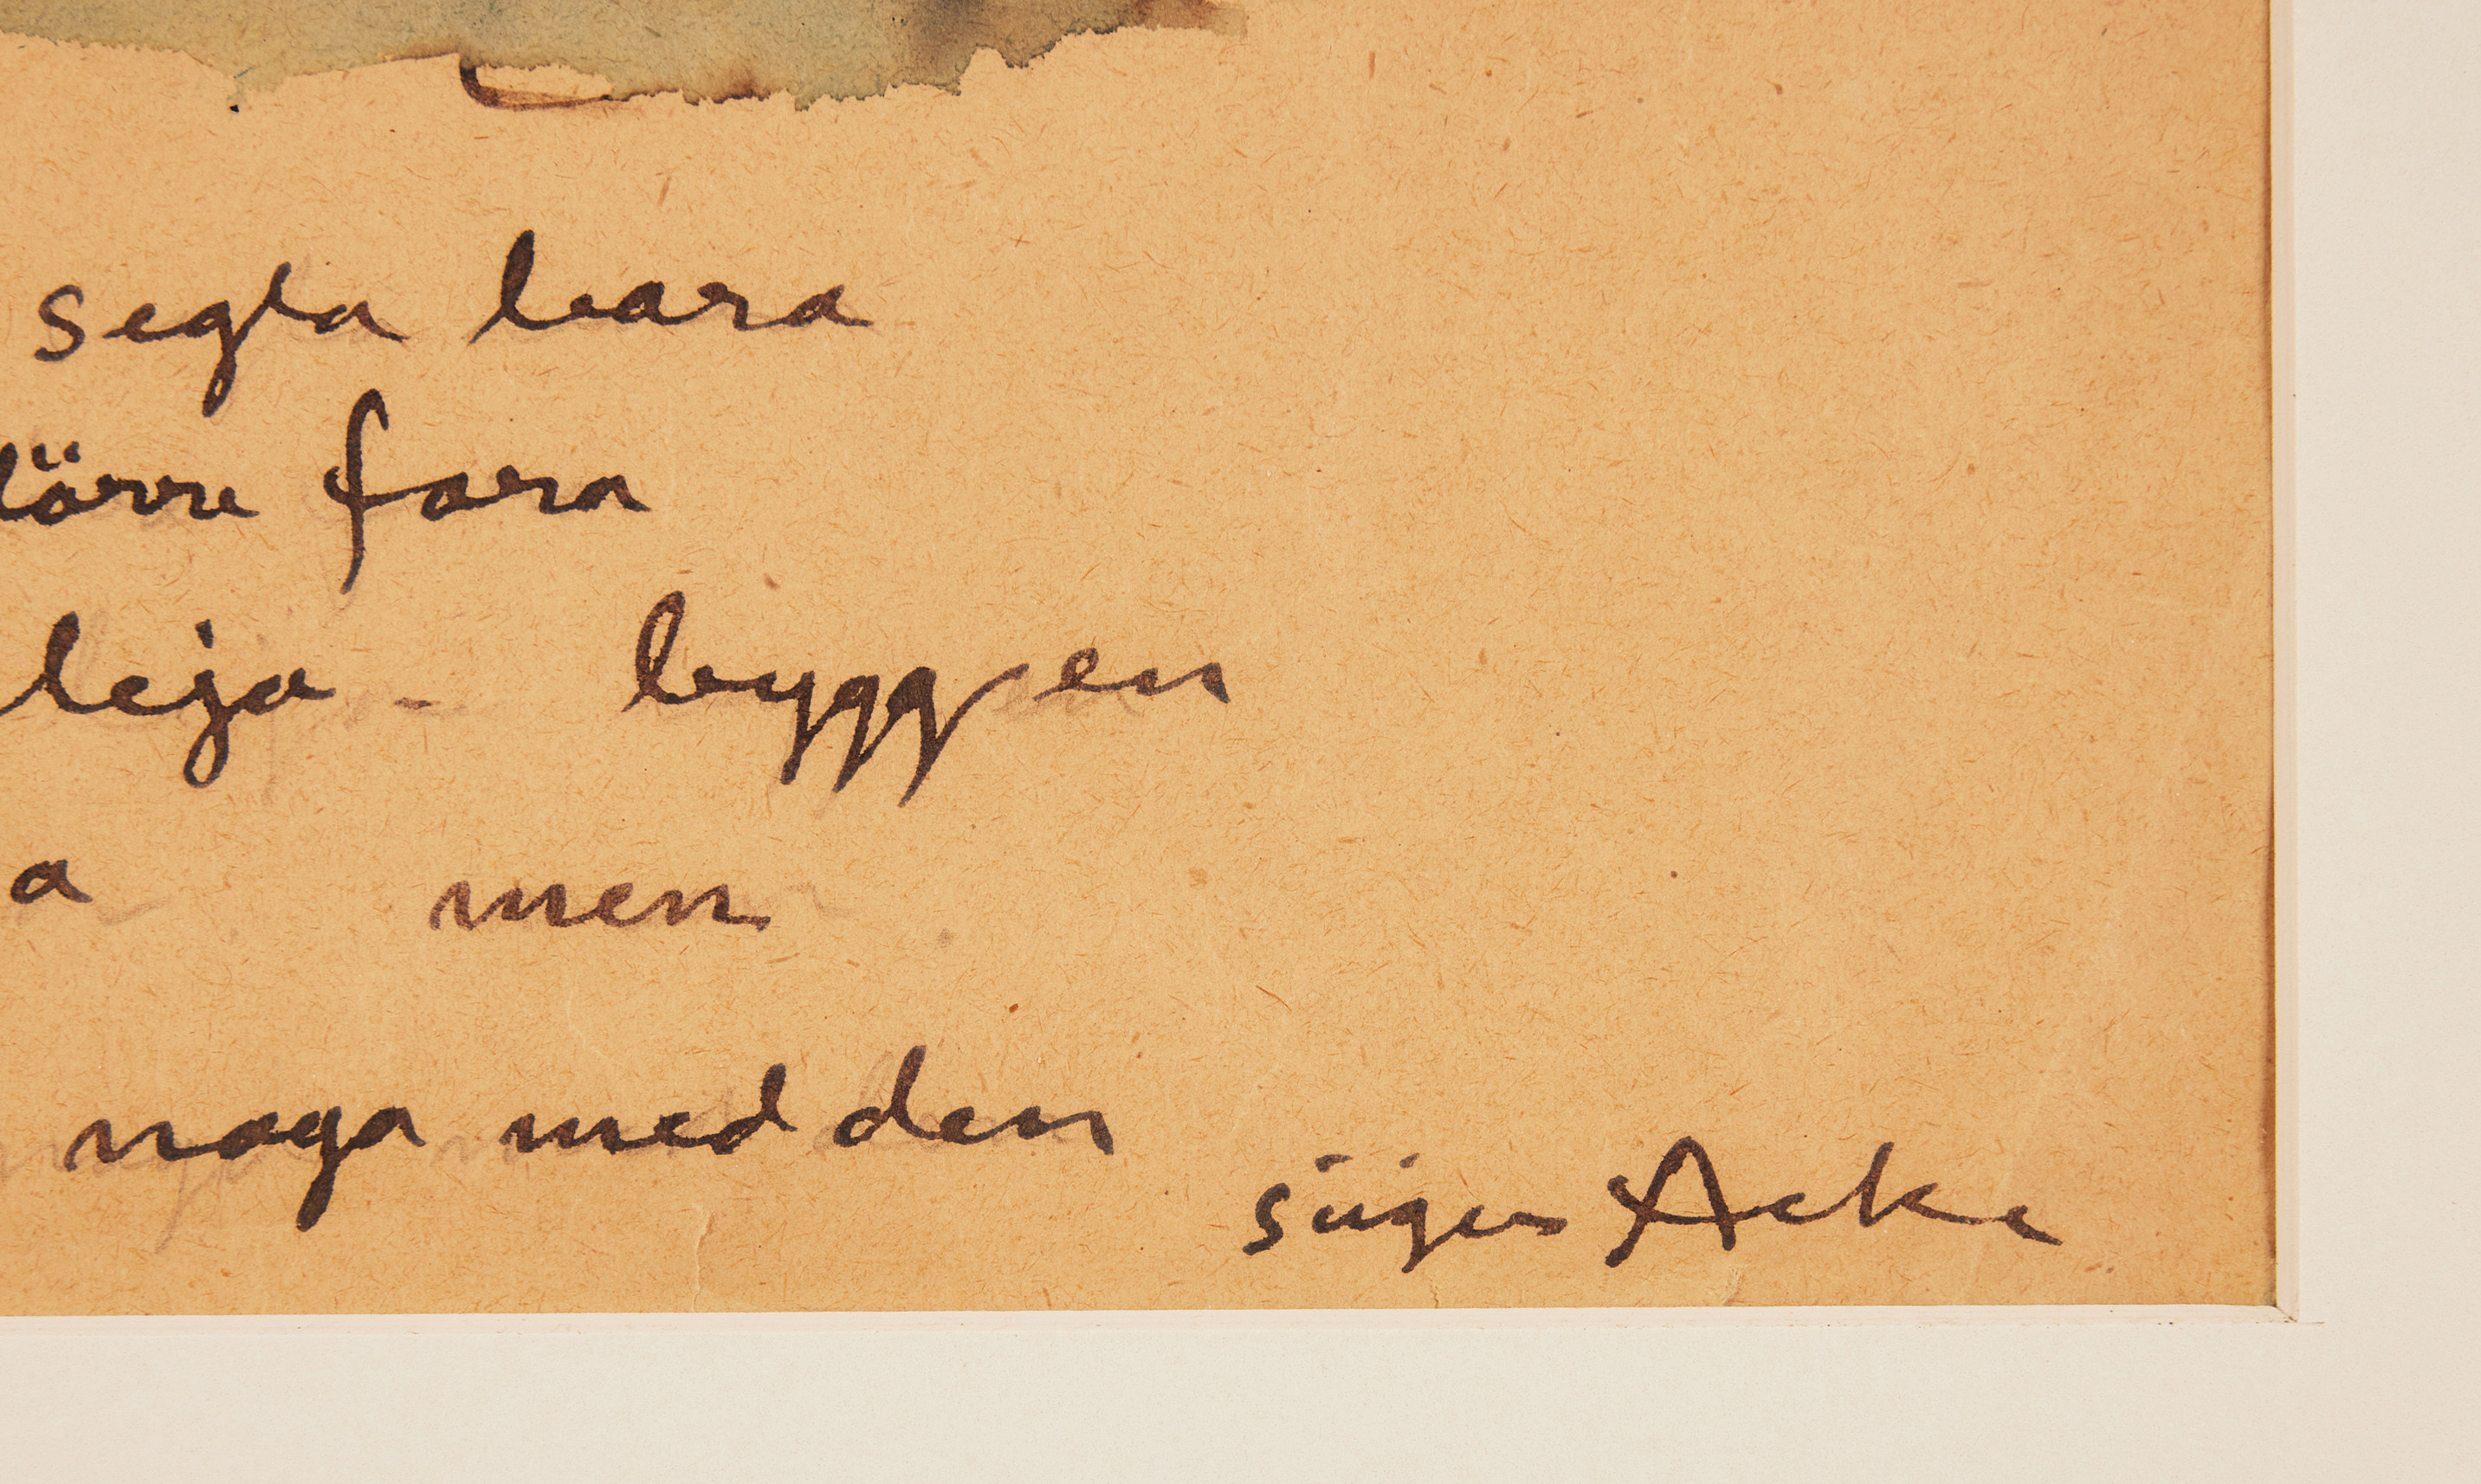 segla bara
törre fara
leja - byggen
a men
noga med den
säger Acke